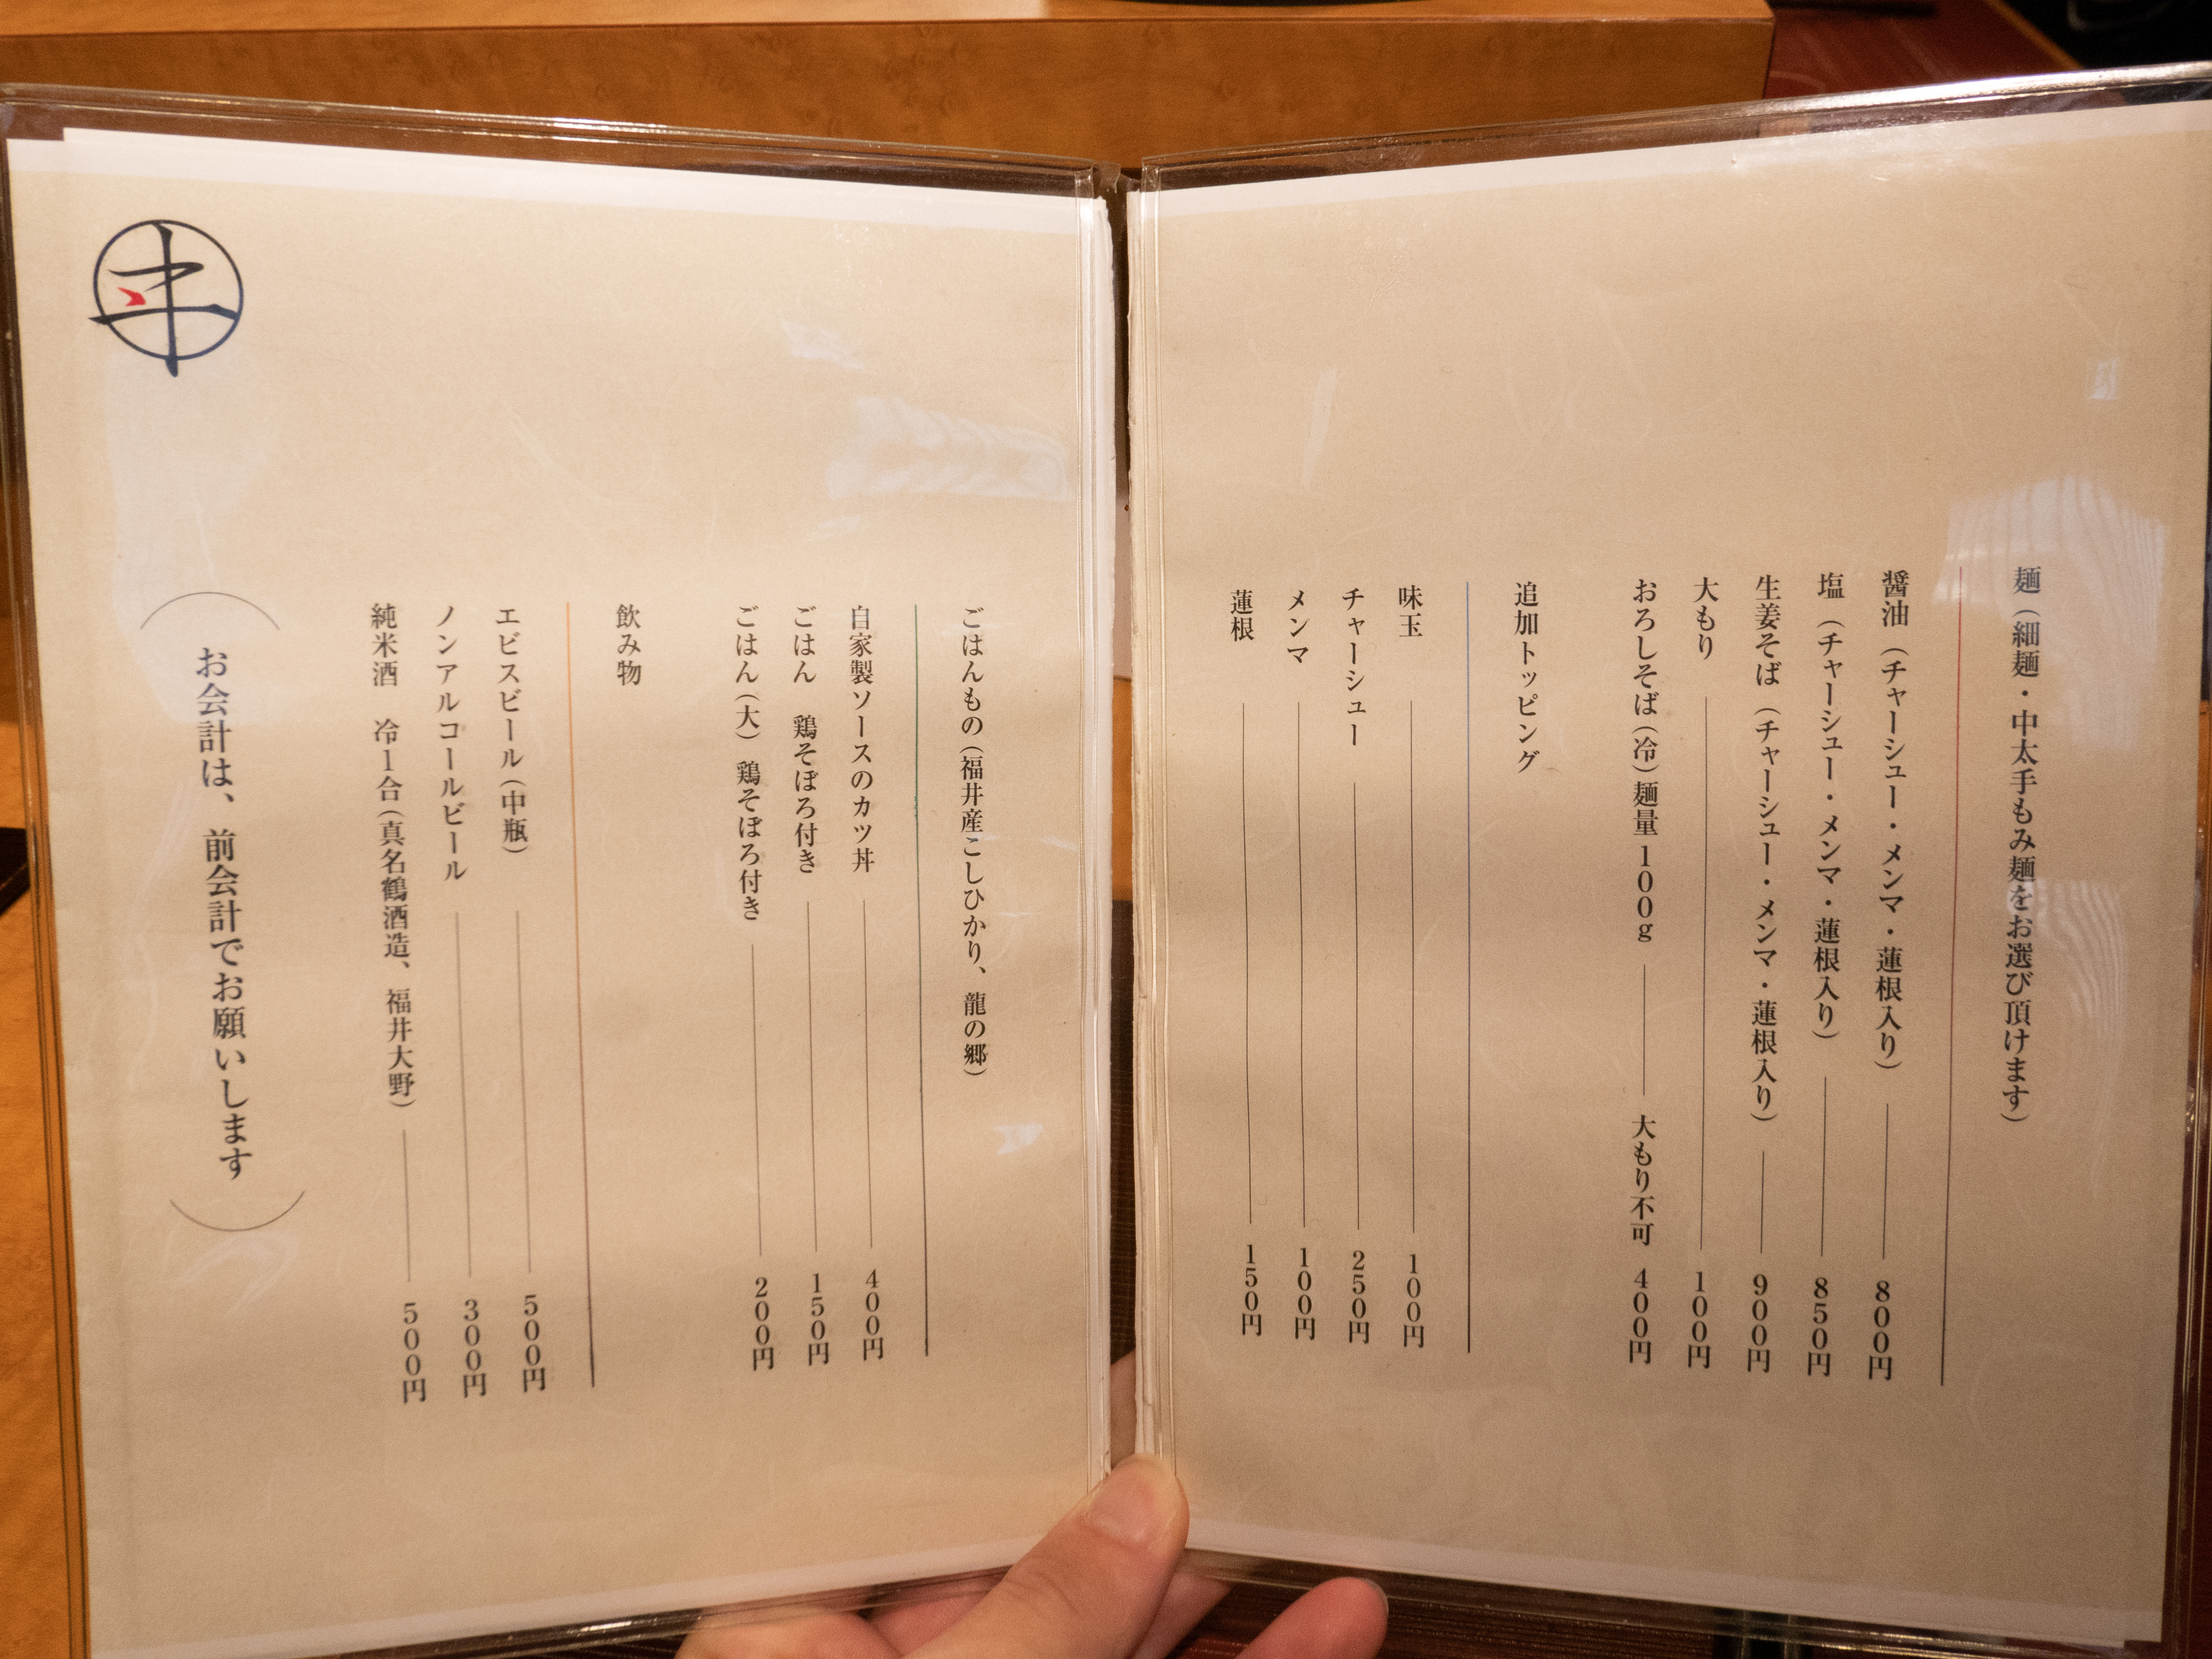 麺（細麺・中太手もみ麺をお選び頂けます）
醤油（チャーシュー・メンマ・蓮根入り） 800円
塩（チャーシュー・メンマ・蓮根入り） 850円
生姜そば（チャーシュー・メンマ・蓮根入り） 900円
大もり 100円
おろしそば（冷）麺量100g 大もり不可 400円
追加トッピング
味玉 100円
チャーシュー 250円
メンマ 100円
蓮根 150円
ごはんもの（福井産こしひかり、龍の郷）
自家製ソースのカツ丼 400円
ごはん 鶏そぼろ付き 150円
ごはん（大） 鶏そぼろ付き 200円
飲み物
エビスビール（中瓶） 500円
ノンアルコールビール 300円
純米酒 冷1合（真名鶴酒造、福井大野） 500円
（お会計は、前会計でお願いします）